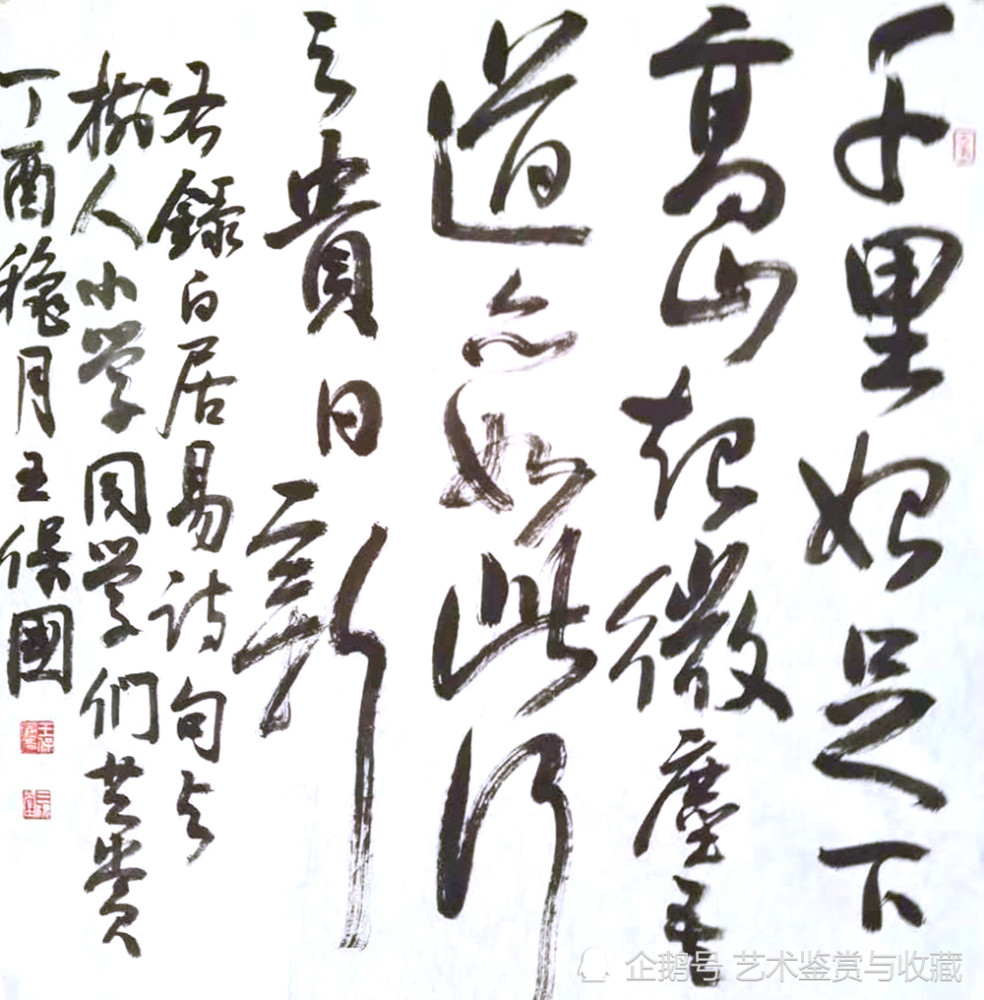 千里始足下
高山起微塵吾
道亦如此行
之貴日新
右錄白居易诗句与
樹人小学同学们共赏
丁酉穐月王保國
企鹅号 艺术鉴赏与收藏